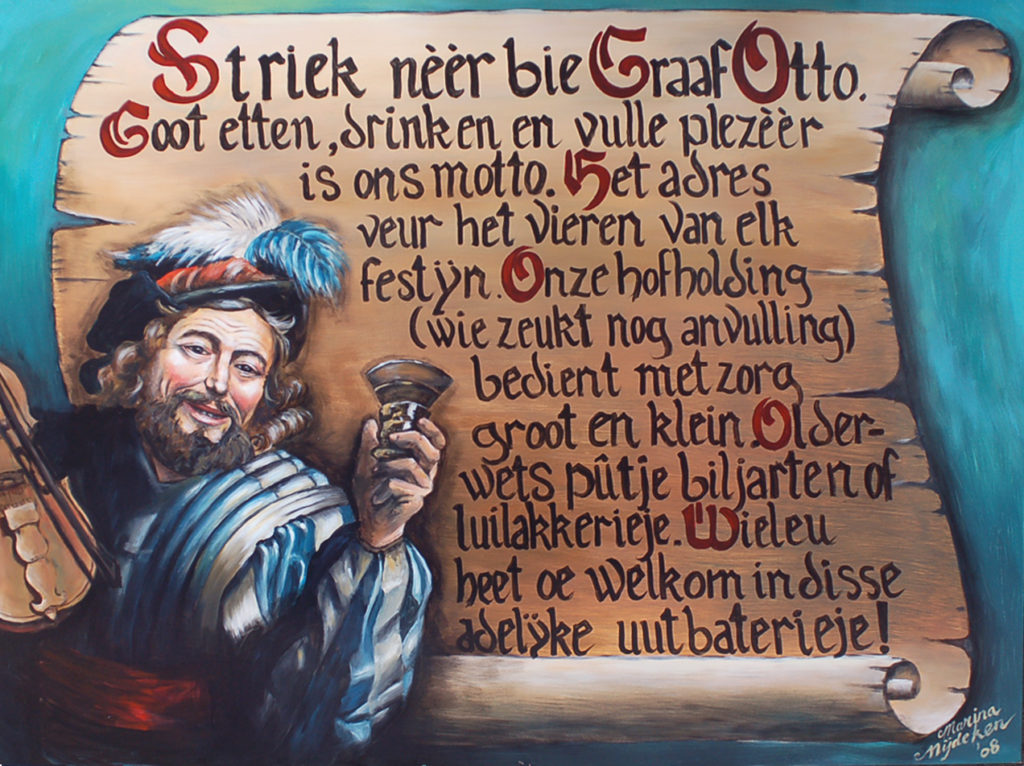 Striek nèèr bie Graaf Otto.
Goot etten, drinken en vulle plezèèr
is ons motto. Het adres
veur het vieren van elk
festÿn. Onze hofholding
(wie zeukt nog anvulling)
bedient met zorg
groot en klein. Older-
wets pûtje biljarten of
luilakkerieje. Wieleu
heet oe welkom in disse
adelÿke uutbaterieje!
Marina
Nijdeken
'08